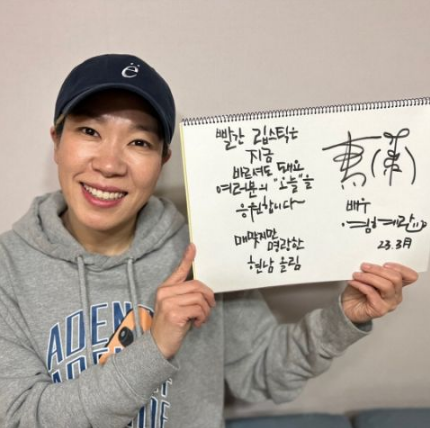 ë
빨간 립스틱은
지금
바르셔도 돼요
여러분의 "오늘"을
응원합니다~
매맞지만
명랑한
현남 올림
배우
염혜란
23.3月
ADEN
ADE